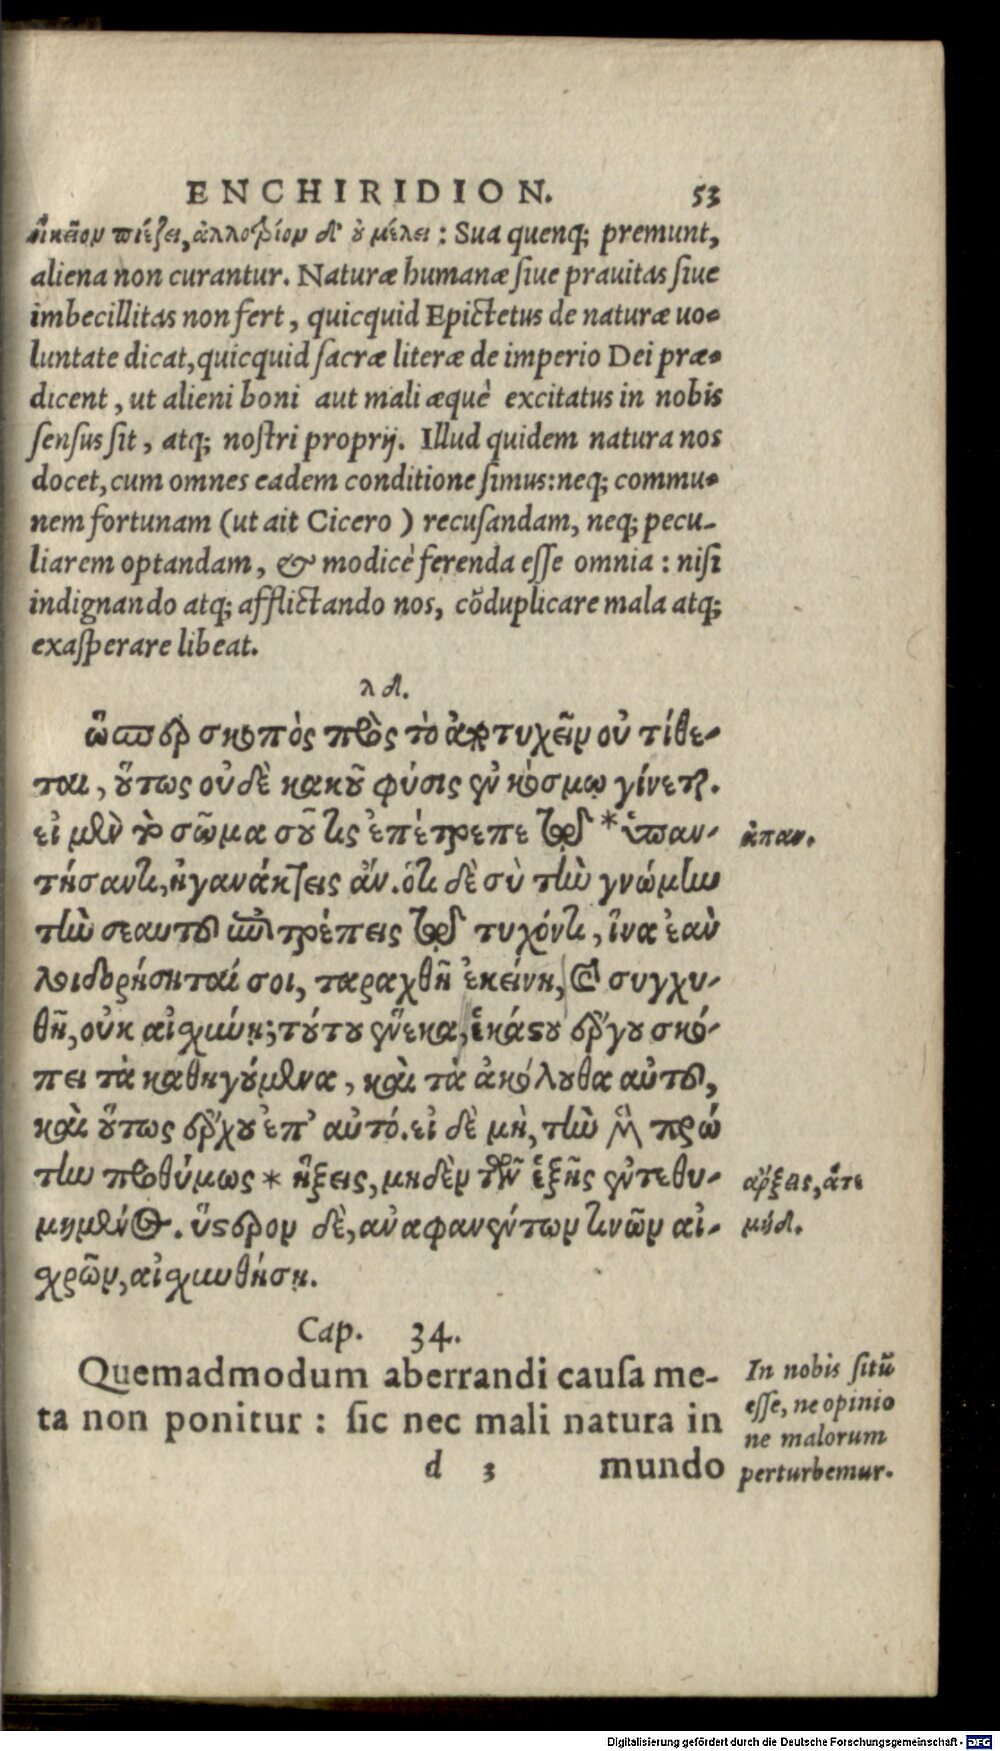 ENCHIRIDION. 53
οἰκεῖον πιέζει, ἀλλότριον δ' οὐ μέλει : Sua quenq; premunt,
aliena non curantur. Naturæ humanæ ſiue prauitas ſiue
imbecillitas non fert, quicquid Epictetus de naturæ uo-
luntate dicat, quicquid ſacræ literæ de imperio Dei præ-
dicent, ut alieni boni aut mali æquè excitatus in nobis
ſenſus ſit, atq; noſtri proprij. Illud quidem natura nos
docet, cum omnes eadem conditione ſimus: neq; commu-
nem fortunam (ut ait Cicero) recuſandam, neq; pecu-
liarem optandam, & modicè ferenda eſſe omnia : niſi
indignando atq; afflictando nos, cōduplicare mala atq;
exaſperare libeat.
λδ.
ὥσπερ σκοπὸς πρὸς τὸ ἀποτυχεῖν οὐ τίθε-
ται, οὕτως οὐδὲ κακοῦ φύσις ἐν κόσμῳ γίνεται.
εἰ μὲν τὸ σῶμά σου τις ἐπέτρεπε τῷ *ὑπαν-
τήσαντι, ἠγανάκτεις ἄν. ὅτι δὲ σὺ τὴν γνώμην
τὴν σεαυτοῦ ἐπιτρέπεις τῷ τυχόντι, ἵνα ἐὰν
λοιδορήσηταί σοι, ταραχθῇ ἐκείνη, καὶ συγχυ-
θῇ, οὐκ αἰσχύνῃ; τούτου ἕνεκα, ἑκάστου ἔργου σκό-
πει τὰ καθηγούμενα, καὶ τὰ ἀκόλουθα αὐτοῦ,
καὶ οὕτως ἔρχου ἐπ' αὐτό. εἰ δὲ μὴ, τὴν μὲν πρώ
την προθύμως * ἥξεις, μηδὲν τῶν ἑξῆς ἐντεθυ-
μημένος. ὕστερον δὲ, ἀναφανέντων τινῶν αἰ-
σχρῶν, αἰσχυνθήσῃ.
ἀπαν.
ἄρξεις, ἅτε
μηδ.
Cap. 34.
Quemadmodum aberrandi cauſa me-
ta non ponitur : ſic nec mali natura in
d 3 mundo
In nobis ſitū
eſſe, ne opinio
ne malorum
perturbemur.
Digitalisierung gefördert durch die Deutsche Forschungsgemeinschaft - DFG